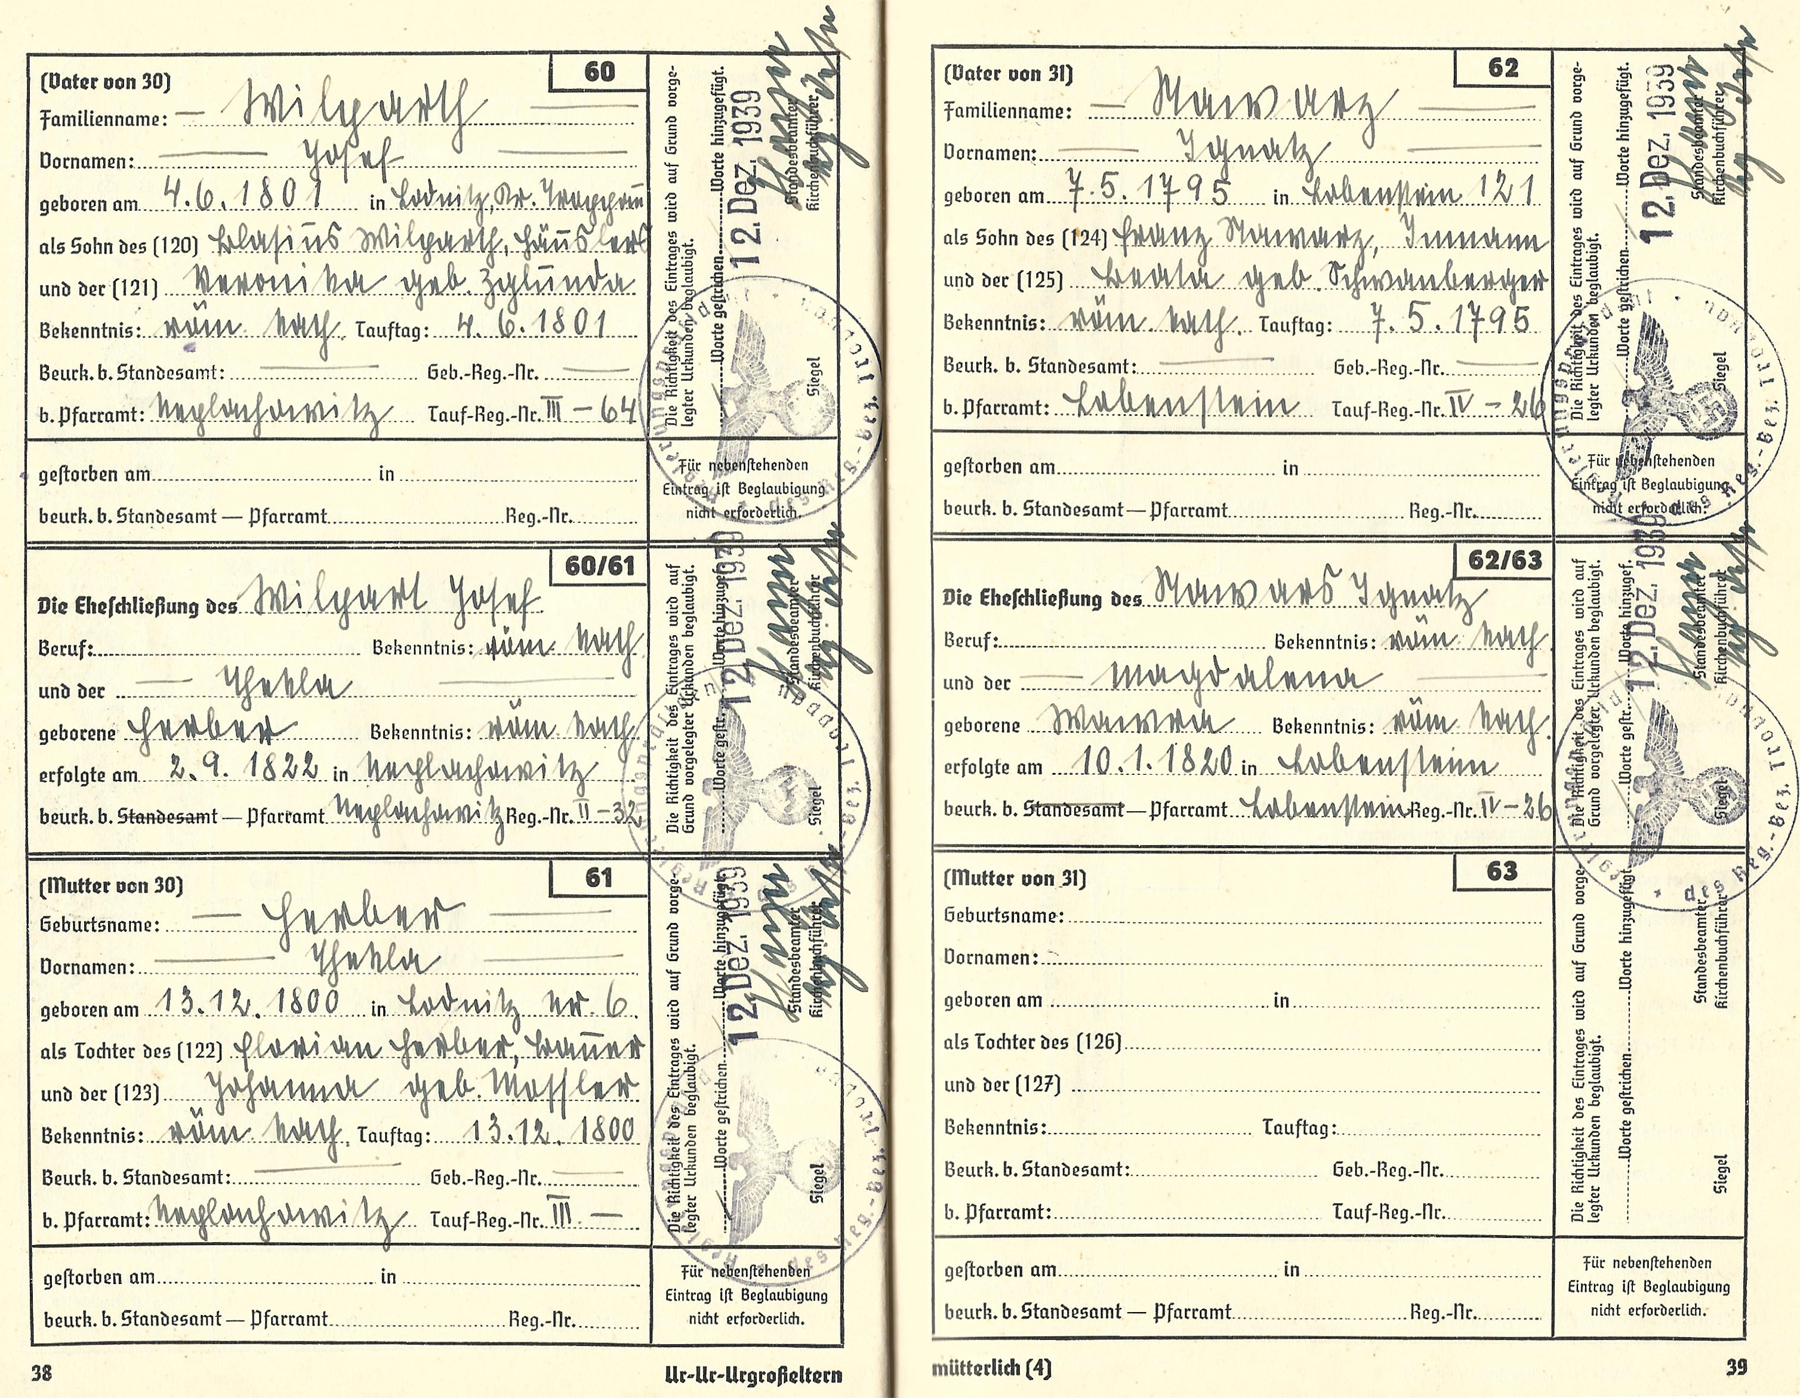 60
(Vater von 30)
Familienname: — Wilparth —
Vornamen: — Josef —
geboren am 4.6.1801 in Lodnitz, Kr. Troppau
als Sohn des (120) Blasius Wilparth, Häuslers
und der (121) Veronika geb. Zglunda
Bekenntnis: röm. kath. Tauftag: 4.6.1801
Beurk. b. Standesamt: — Geb.-Reg.-Nr. —
b. Pfarramt: Neplachowitz Tauf-Reg.-Nr. III – 64
gestorben am in
beurk. b. Standesamt — Pfarramt Reg.-Nr.
Die Richtigkeit des Eintrages wird auf Grund vorge-
legter Urkunden beglaubigt.
Worte gestrichen Worte hinzugefügt.
12. Dez. 1939
Standesbeamter
Kirchenbuchführer
Siegel
Für nebenstehenden
Eintrag ist Beglaubigung
nicht erforderlich.
60/61
Die Eheschließung des Wilpart Josef
Beruf: Bekenntnis: röm. kath.
und der — Thekla —
geborene Herber Bekenntnis: röm. kath.
erfolgte am 2.9.1822 in Neplachowitz
beurk. b. Standesamt — Pfarramt Neplachowitz Reg.-Nr. II – 32
Die Richtigkeit des Eintrages wird auf
Grund vorgelegter Urkunden beglaubigt.
Worte gestr. Worte hinzugef.
12. Dez. 1939
Standesbeamter
Kirchenbuchführer
Siegel
61
(Mutter von 30)
Geburtsname: — Herber —
Vornamen: — Thekla —
geboren am 13.12.1800 in Lodnitz Nr. 6
als Tochter des (122) Florian Herber, Bauer
und der (123) Johanna geb. Mossler
Bekenntnis: röm. kath. Tauftag: 13.12.1800
Beurk. b. Standesamt: — Geb.-Reg.-Nr. —
b. Pfarramt: Neplachowitz Tauf-Reg.-Nr. III —
gestorben am in
beurk. b. Standesamt — Pfarramt Reg.-Nr.
Die Richtigkeit des Eintrages wird auf Grund vorge-
legter Urkunden beglaubigt.
Worte gestrichen Worte hinzugefügt.
12. Dez. 1939
Standesbeamter
Kirchenbuchführer
Siegel
Für nebenstehenden
Eintrag ist Beglaubigung
nicht erforderlich.
38
Ur-Ur-Urgroßeltern
62
(Vater von 31)
Familienname: — Nawarz —
Vornamen: — Ignatz —
geboren am 7.5.1795 in Lobenstein 121
als Sohn des (124) Franz Nawarz, Inmann
und der (125) Beata geb. Schwanberger
Bekenntnis: röm. kath. Tauftag: 7.5.1795
Beurk. b. Standesamt: — Geb.-Reg.-Nr. —
b. Pfarramt: Lobenstein Tauf-Reg.-Nr. IV – 26
gestorben am in
beurk. b. Standesamt — Pfarramt Reg.-Nr.
Die Richtigkeit des Eintrages wird auf Grund vorge-
legter Urkunden beglaubigt.
Worte gestrichen Worte hinzugefügt.
12. Dez. 1939
Standesbeamter
Kirchenbuchführer
Siegel
Für nebenstehenden
Eintrag ist Beglaubigung
nicht erforderlich.
62/63
Die Eheschließung des Nawars Ignatz
Beruf: Bekenntnis: röm. kath.
und der — Magdalena —
geborene Wawra Bekenntnis: röm. kath.
erfolgte am 10.1.1820 in Lobenstein
beurk. b. Standesamt — Pfarramt Lobenstein Reg.-Nr. IV – 26
Die Richtigkeit des Eintrages wird auf
Grund vorgelegter Urkunden beglaubigt.
Worte gestr. Worte hinzugef.
12. Dez. 1939
Standesbeamter
Kirchenbuchführer
Siegel
63
(Mutter von 31)
Geburtsname:
Vornamen:
geboren am in
als Tochter des (126)
und der (127)
Bekenntnis: Tauftag:
Beurk. b. Standesamt: Geb.-Reg.-Nr.
b. Pfarramt: Tauf-Reg.-Nr.
gestorben am in
beurk. b. Standesamt — Pfarramt Reg.-Nr.
Die Richtigkeit des Eintrages wird auf Grund vorge-
legter Urkunden beglaubigt.
Worte gestrichen Worte hinzugefügt.
Standesbeamter
Kirchenbuchführer
Siegel
Für nebenstehenden
Eintrag ist Beglaubigung
nicht erforderlich.
mütterlich (4)
39